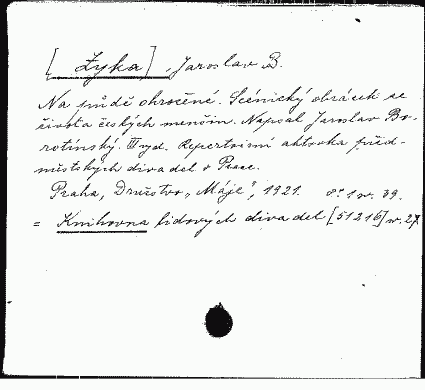 [Zyka], Jaroslav B.
Na půdě ohrožené. Scénický obrázek ze
života českých menšin. Napsal Jaroslav Bo-
rotínský. III vyd. Repertoirní aktovka před-
městských divadel v Praze.
Praha, Družstvo „Máje", 1921. 8° 1 v. 39.
= Knihovna lidových divadel [51216] v. 27.